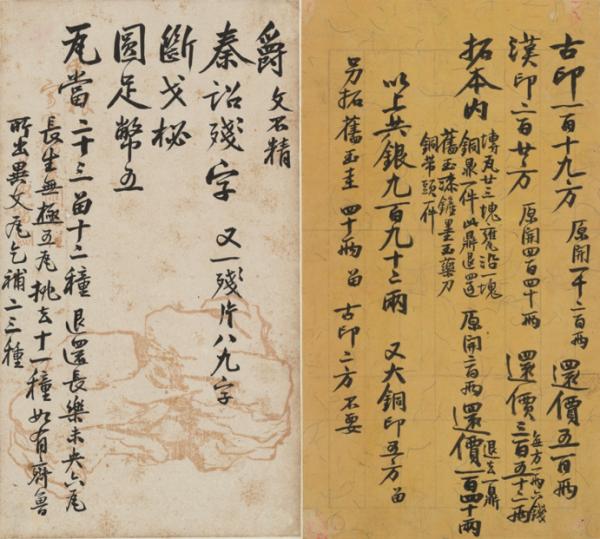 古印一百十九方 原開一千二百兩 還價五百兩
漢印二百廿方 原開四百四十兩 還價三百五十二兩
每方一兩六錢
拓本內
塼瓦廿三塊甕沿一塊
銅泉一件以鼎退四道
舊玉漆鏟墨玉藥刀
銅帶頭一件
原開二百兩 還價一百四十兩
退去一鼎
以上共銀九百九十二兩 又大銅印五方留
另拓舊玉圭 四十兩 留 古印二方不要
爵 文不精
秦詔殘字 又一殘片八九字
斷戈柲
圓足幣五
瓦當 二十三留十二種 退還長樂未央六瓦
長生無極五瓦挑去十一種如有齊魯
所出異文瓦乞補二三種